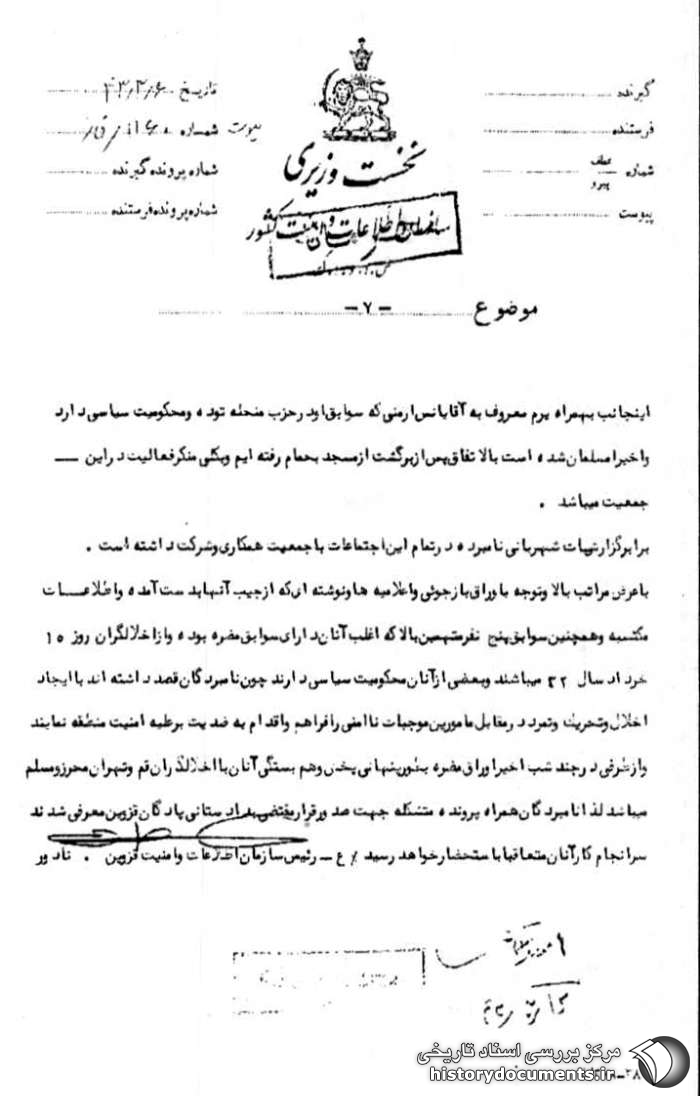 گیرنده
فرستنده
شماره عطف پیرو
پیوست
تاریخ ۴۳٫۲٫۶
شماره
پیوست
شماره پرونده گیرنده
شماره پرونده فرستنده
نخست وزیری
سازمان اطلاعات و امنیت کشور
موضوع -۷-
اینجانب بهمراه یرم معروف به آقابانس ارمنی که سوابق او در حزب منحله توده ومحکومیت سیاسی دارد
واخیرا مسلمان شده است بالاتفاق پس از برگشت از مسجد بحمام رفته ایم وبکلی منکر فعالیت در این —
جمعیت میباشد .
برابر گزارشهات شهربانی نامبرده در تمام این اجتماعات با جمعیت همکاری وشرکت داشته است .
با عرض مراتب بالا وتوجه باوراق بازجوئی واعلامیه ها ونوشته ای که از جیب آنها بدست آمده واطلاعات
مکتسبه وهمچنین سوابق پنج نفر متهمین بالا که اغلب آنان دارای سوابق مضره بوده واز اخلالگران روز ۱۵
خرداد سال ۴۲ میباشند وبعضی از آنان محکومیت سیاسی دارند چون نامبردگان قصد داشته اند با ایجاد
اخلال وتحریک وتمرد در مقابل مامورین موجبات ناامنی را فراهم واقدام به ضدیت برعلیه امنیت منطقه نمایند
واز طرفی در چند شب اخیر اوراق مضره بطور پنهانی پخش وهم بستگی آنان با اخلالگران قم وتهران محرز ومسلم
میباشد لذا نامبردگان همراه پرونده متشکله جهت صدور قرار مقتضی بدادستانی پادگان قزوین معرفی شدند
سرانجام کار آنان متعاقبا باستحضار خواهد رسید ٪ ع – رئیس سازمان اطلاعات وامنیت قزوین . نادور
مرکز بررسی اسناد تاریخی
historydocuments.ir